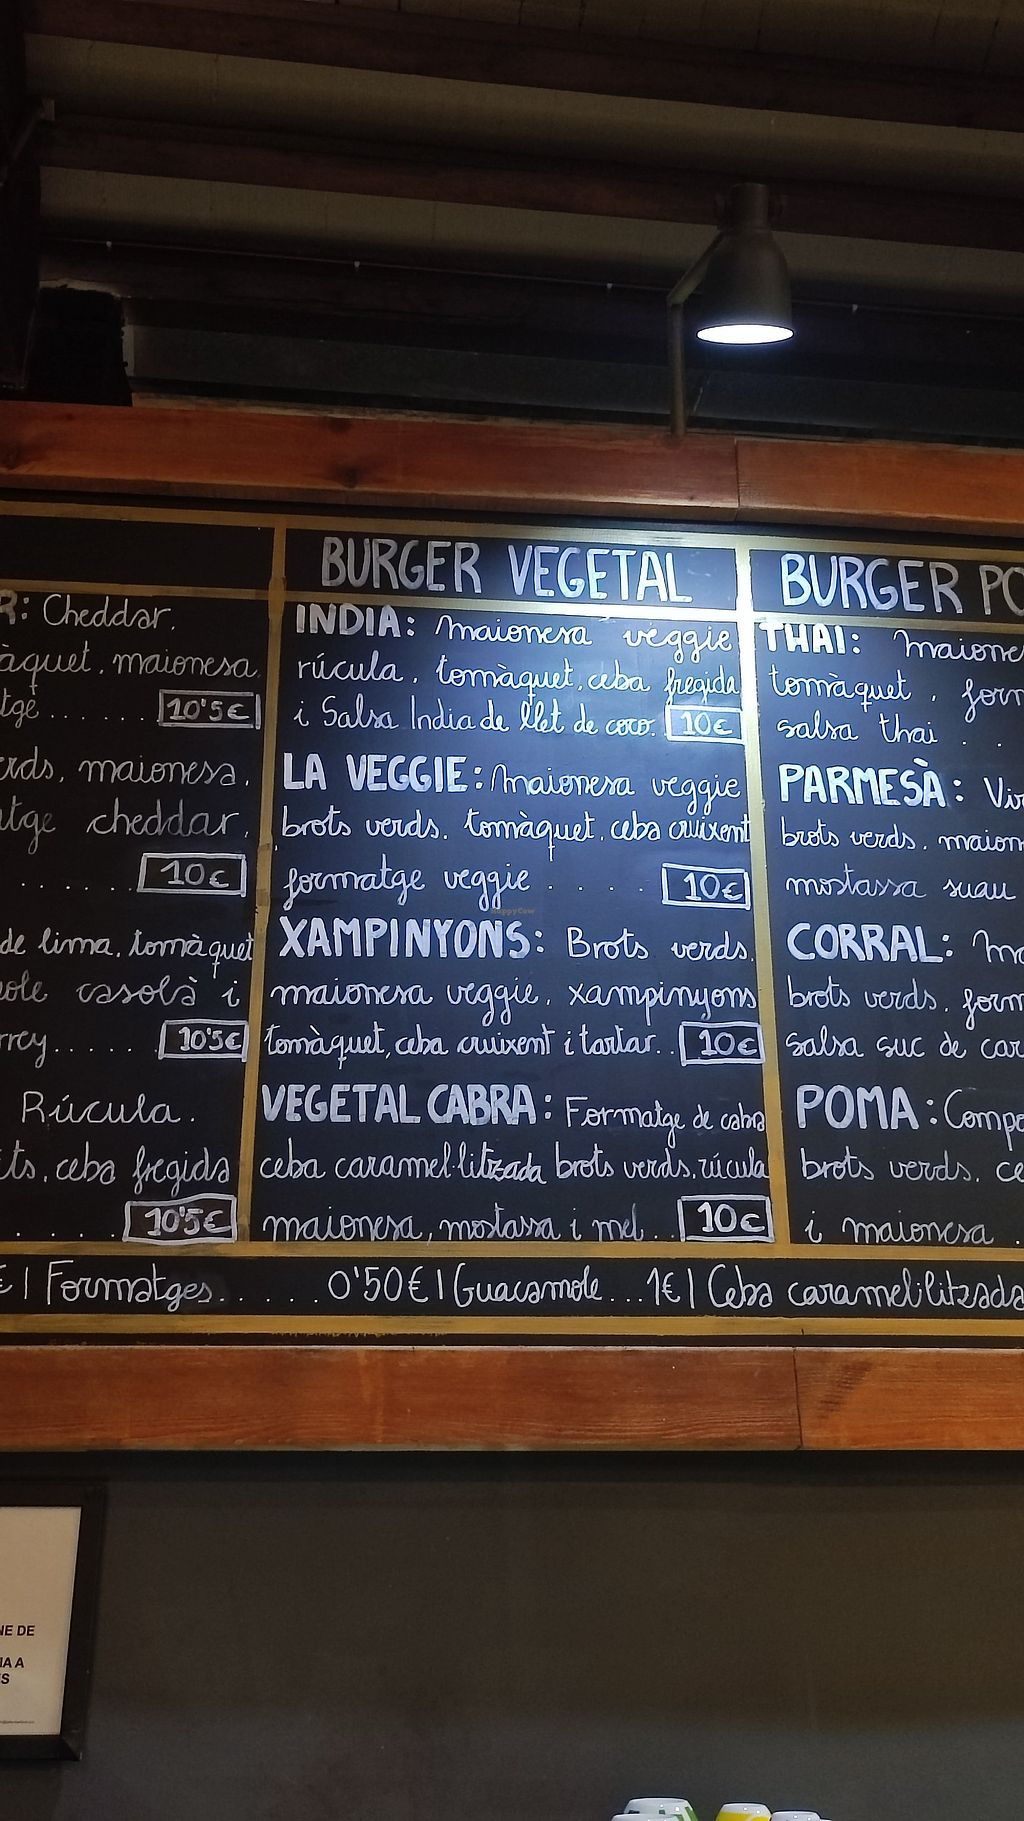 BURGER VEGETAL
INDIA: maionesa veggie
rúcula, tomàquet, ceba fregida
i Salsa India de llet de coco. 10€
LA VEGGIE: maionesa veggie
brots verds, tomàquet, ceba cruixent
formatge veggie . . . . . 10€
XAMPINYONS: Brots verds,
maionesa veggie, xampinyons
tomàquet, ceba cruixent i tartar.. 10€
VEGETAL CABRA: Formatge de cabra
ceba caramel·litzada brots verds, rúcula
maionesa, mostassa i mel.. 10€
R: Cheddar,
àquet, maionesa
tge ....... 10'5€
rds, maionesa,
tge cheddar,
...... 10€
de lima, tomàquet
ole casolà i
rrey..... 10'5€
Rúcula.
ts, ceba fregida
..... 10'5€
BURGER PO
THAI: maiones
tomàquet, form
salsa thai . .
PARMESÀ: Vi
brots verds, maion
mostassa suau
CORRAL: Ma
brots verds, form
salsa suc de car
POMA: Compo
brots verds, ce
i maionesa .
€ | Formatges...... 0'50€ | Guacamole...1€ | Ceba caramel·litzada
NE DE
IA A
S
HappyCow